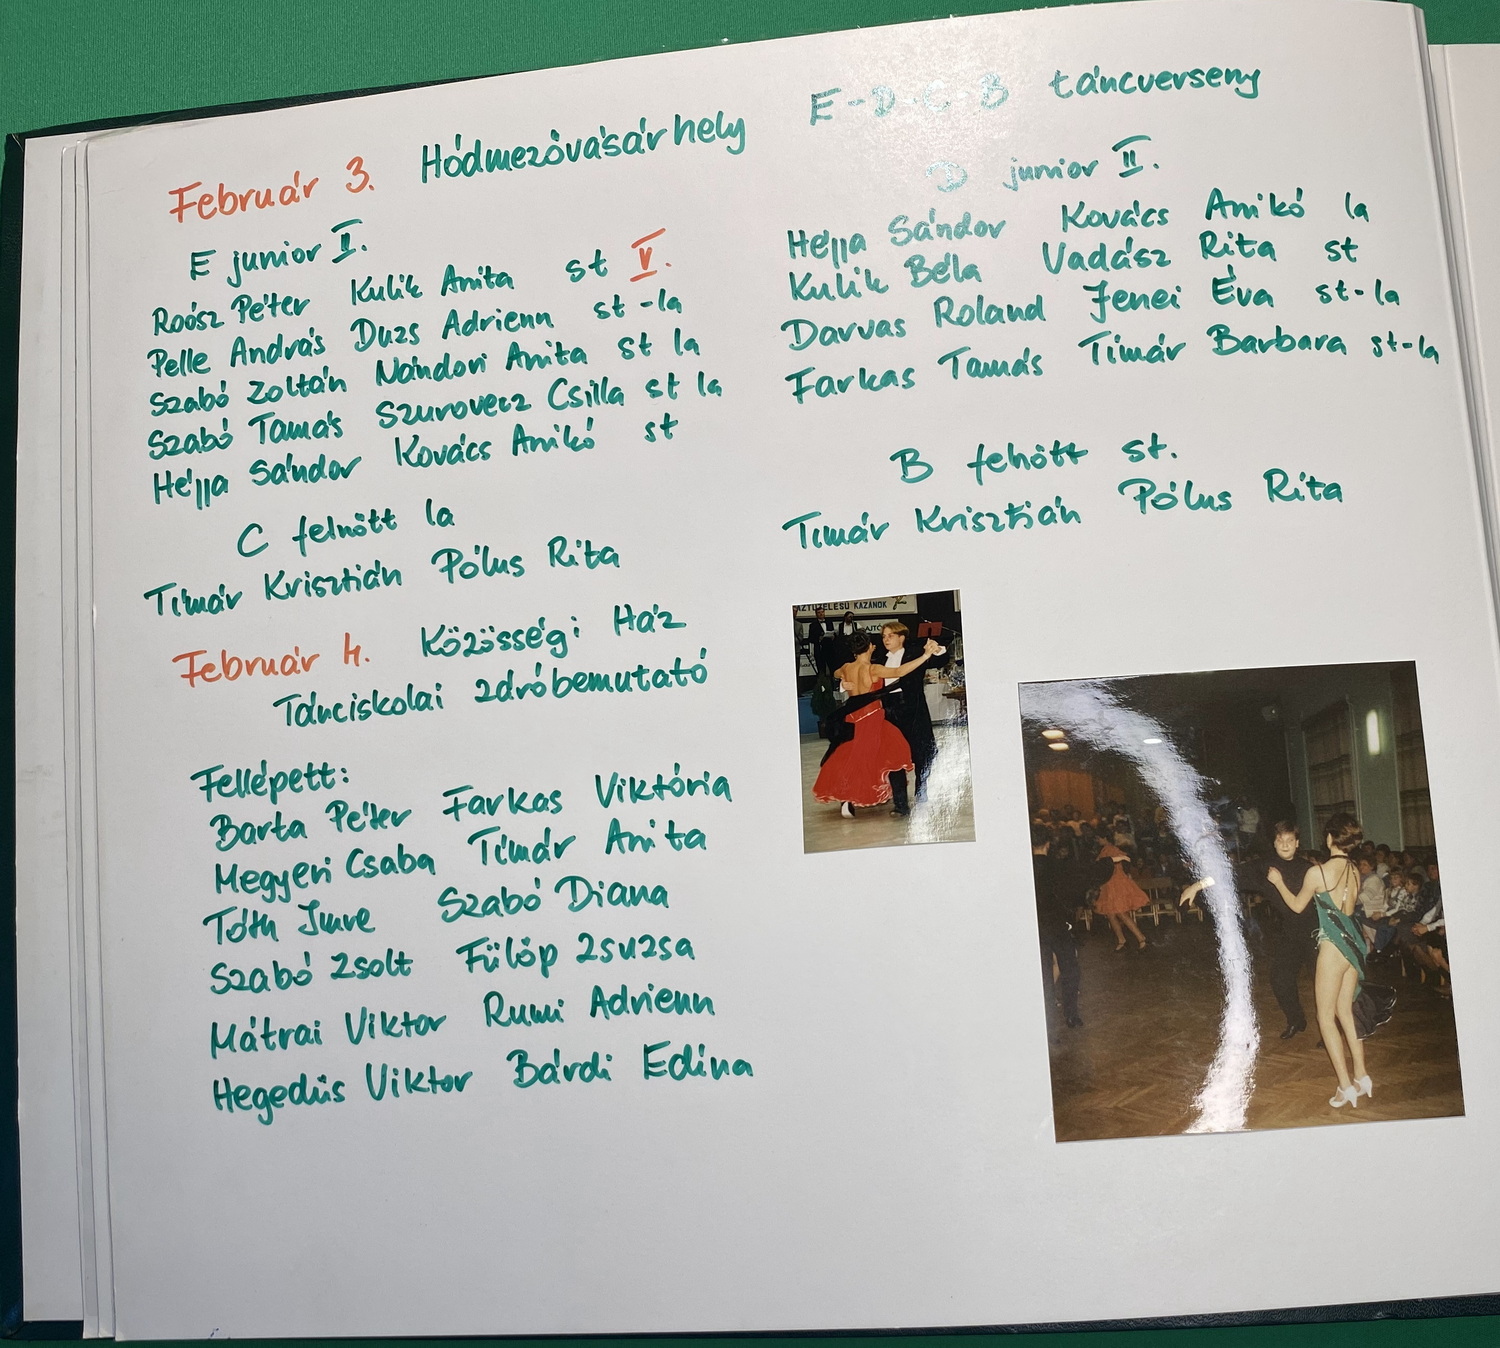 Február 3. Hódmezővásárhely E-D-C-B táncverseny
E junior II.
Roósz Péter Kulik Anita st V.
Pelle András Duzs Adrienn st-la
Szabó Zoltán Nándori Anita st la
Szabó Tamás Szurovecz Csilla st la
Héjja Sándor Kovács Anikó st
C felnőtt la
Tímár Krisztián Pólus Rita
D junior II.
Héjja Sándor Kovács Anikó la
Kulik Béla Vadász Rita st
Darvas Roland Jenei Éva st-la
Farkas Tamás Tímár Barbara st-la
B felnőtt st.
Tímár Krisztián Pólus Rita
Február 4. Közösségi Ház
Tánciskolai zdróbemutató
Fellépett:
Barta Péter Farkas Viktória
Megyeri Csaba Tímár Anita
Tóth Imre Szabó Diana
Szabó Zsolt Fülöp Zsuzsa
Mátrai Viktor Rumi Adrienn
Hegedüs Viktor Bárdi Edina
KAZÁNOK